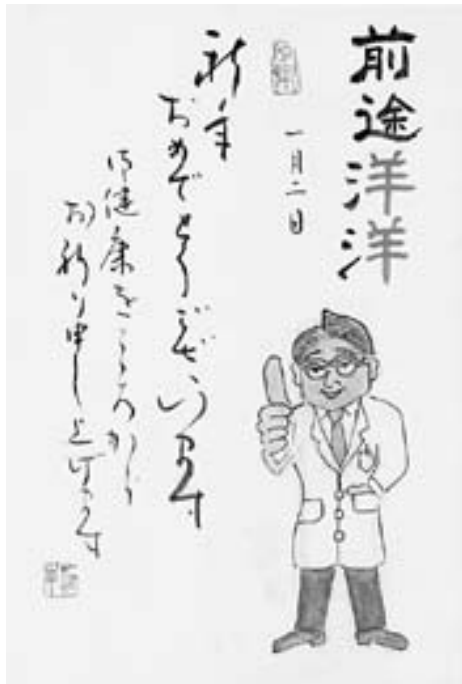 前途洋洋
一月二日
新年
おめでとうございます
御健康をこころから
お祈り申し上げます